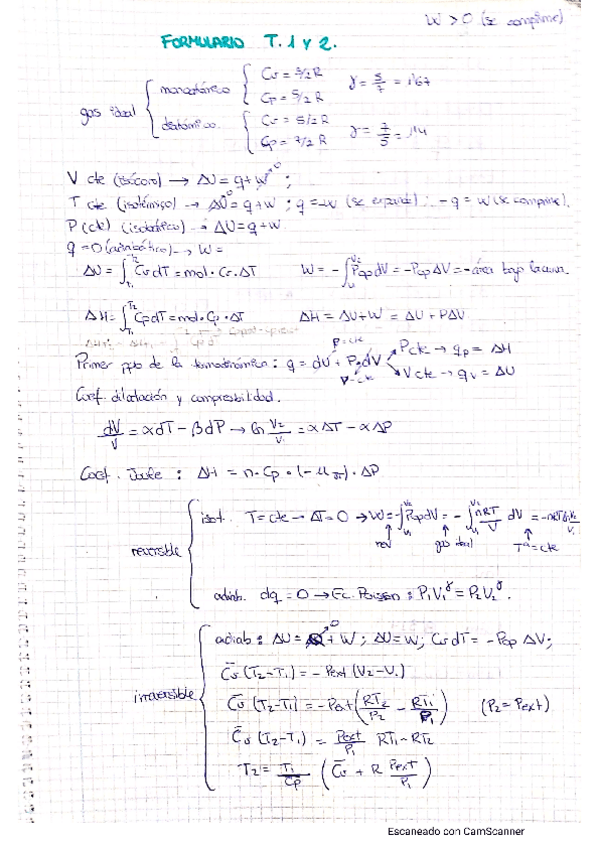 W > 0 (se comprime)
FORMULARIO T. 1 Y 2.
gas ideal
monoatómico
Cv = 3/2 R
Cp = 5/2 R
γ = 5/7 = 1'67
diatómico.
Cv = 5/2 R
Cp = 7/2 R
γ = 7/5 = 1'4
V cte (isócoro) → ΔU = q + W → 0 ;
T cte (isotérmico) → ΔU → 0 = q + W ; q = -W (se expande) ; -q = W (se comprime).
P (cte) (isobárico) → ΔU = q + W
q = 0 (adiabático) → W =
ΔU = ∫T1T2 Cv dT = mol · Cv · ΔT W = -∫V1V2 Pop dV = -Pop ΔV = - área bajo la curva.
ΔH = ∫T1T2 Cp dT = mol · Cp · ΔT ΔH = ΔU + W = ΔU + PΔV
Primer ppo de la termodinámica : q = dU + P dV
P cte → qp = ΔH
V cte → qv = ΔU
Coef. dilatación y compresibilidad.
dV/V = α dT - β dP → ln V2/V1 = α ΔT - α ΔP
Coef. Joule : ΔH = n · Cp · (-μJT) · ΔP
reversible
isot. T = cte → ΔT = 0 → W = -∫V1V2 Pop dV = -∫V1V2 nRT/V dV = -nRT ln V2/V1
rev gas ideal Tª = cte
adiab. dq = 0 → Ec. Poisson : P1V1^γ = P2V2^γ.
irreversible
adiab : ΔU = Q → 0 + W ; ΔU = W ; Cv dT = -Pop ΔV ;
C̄v (T2 - T1) = - Pext (V2 - V1)
C̄v (T2 - T1) = - Pext (RT2/P2 - RT1/P1) (P2 = Pext)
C̄v (T2 - T1) = Pext/P1 RT1 - RT2
T2 = T1/Cp (C̄v + R Pext/P1)
Escaneado con CamScanner